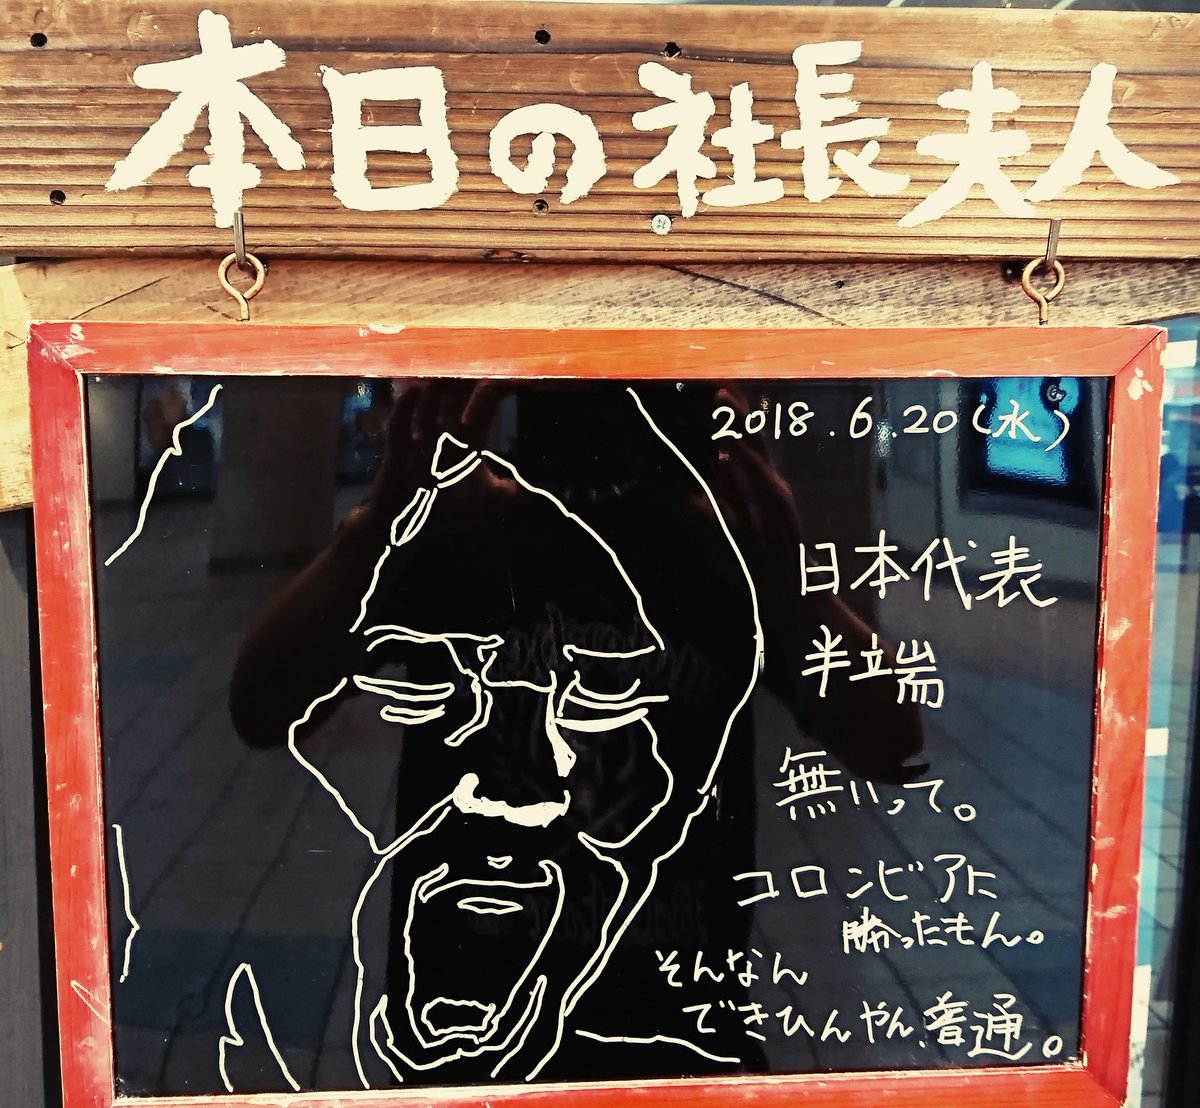 本日の社長夫人
2018.6.20(水)
日本代表
半立端
無いって。
コロンビアに
勝ったもん。
そんなん
できひんやん、普通。